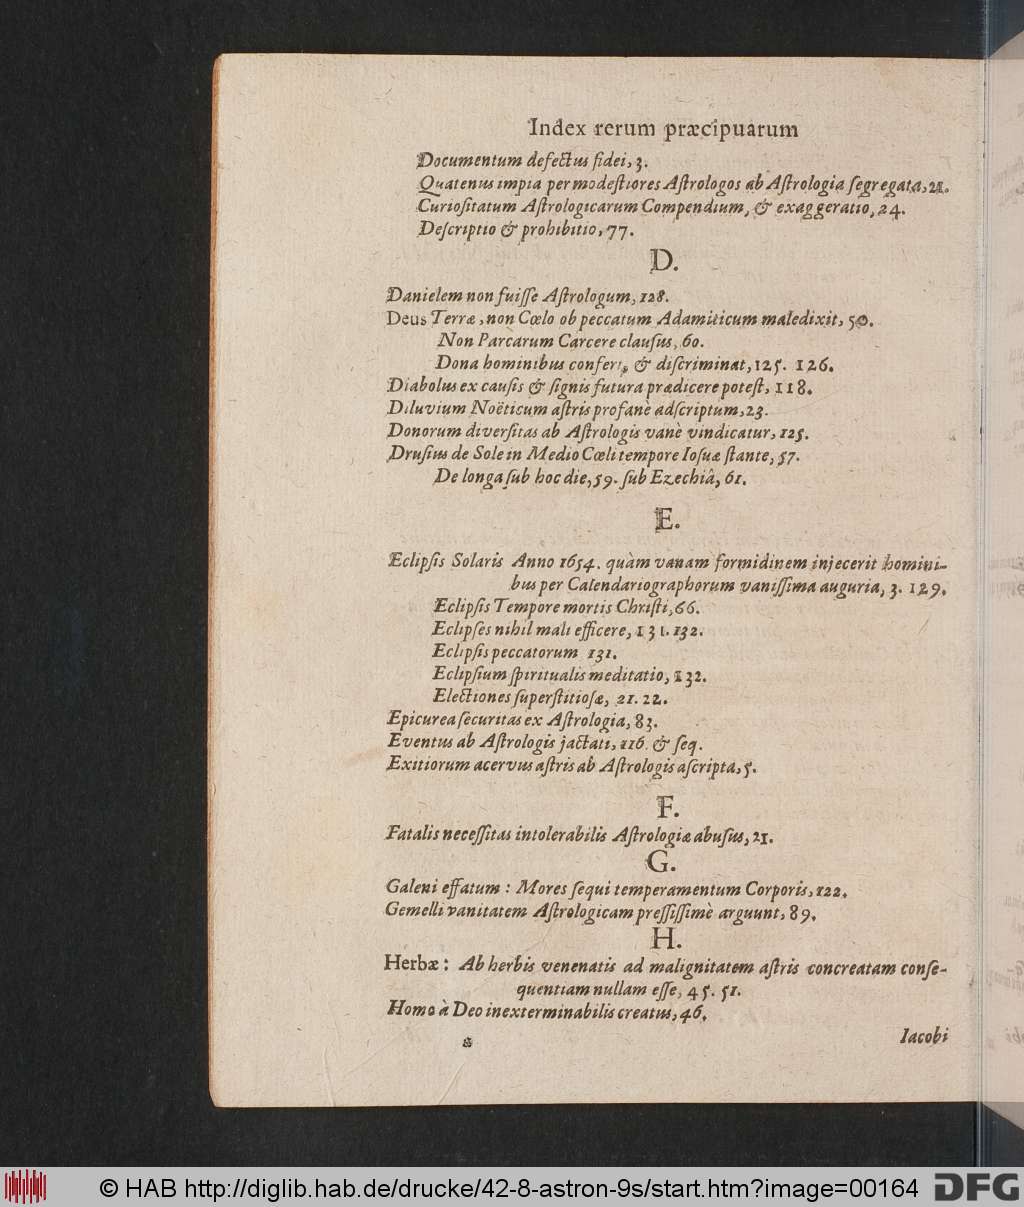 Index rerum præcipuarum
Documentum defectus fidei, 3.
Quatenus impia per modeſtiores Aſtrologos ab Aſtrologia ſegregata, 21.
Curioſitatum Aſtrologicarum Compendium, & exaggeratio, 24.
Deſcriptio & prohibitio, 77.
D.
Danielem non fuiſſe Aſtrologum, 128.
Deus Terræ, non Cœlo ob peccatum Adamiticum maledixit, 50.
Non Parcarum Carcere clauſus, 60.
Dona hominibus confert, & diſcriminat, 125. 126.
Diabolus ex cauſis & ſignis futura prædicere poteſt, 118.
Diluvium Noëticum aſtris profanè adſcriptum, 23.
Donorum diverſitas ab Aſtrologis vanè vindicatur, 125.
Druſius de Sole in Medio Cœli tempore Ioſuæ ſtante, 57.
De longa ſub hoc die, 59. ſub Ezechiâ, 61.
E.
Eclipſis Solaris Anno 1654. quàm vanam formidinem injecerit homini-
bus per Calendariographorum vaniſſima auguria, 3. 129.
Eclipſis Tempore mortis Chriſti, 66.
Eclipſes nihil mali efficere, 131. 132.
Eclipſis peccatorum 131.
Eclipſium ſpiritualis meditatio, 132.
Electiones ſuperſtitioſæ, 21. 22.
Epicurea ſecuritas ex Aſtrologia, 83.
Eventus ab Aſtrologis jactati, 116. & ſeq.
Exitiorum acervus aſtris ab Aſtrologis aſcripta, 5.
F.
Fatalis neceſſitas intolerabilis Aſtrologiæ abuſus, 21.
G.
Galeni effatum : Mores ſequi temperamentum Corporis, 122.
Gemelli vanitatem Aſtrologicam preſſiſſimè arguunt, 89.
H.
Herbæ : Ab herbis venenatis ad malignitatem aſtris concreatam conſe-
quentiam nullam eſſe, 45. 51.
Homo à Deo inexterminabilis creatus, 46.
Iacobi
© HAB http://diglib.hab.de/drucke/42-8-astron-9s/start.htm?image=00164
DFG